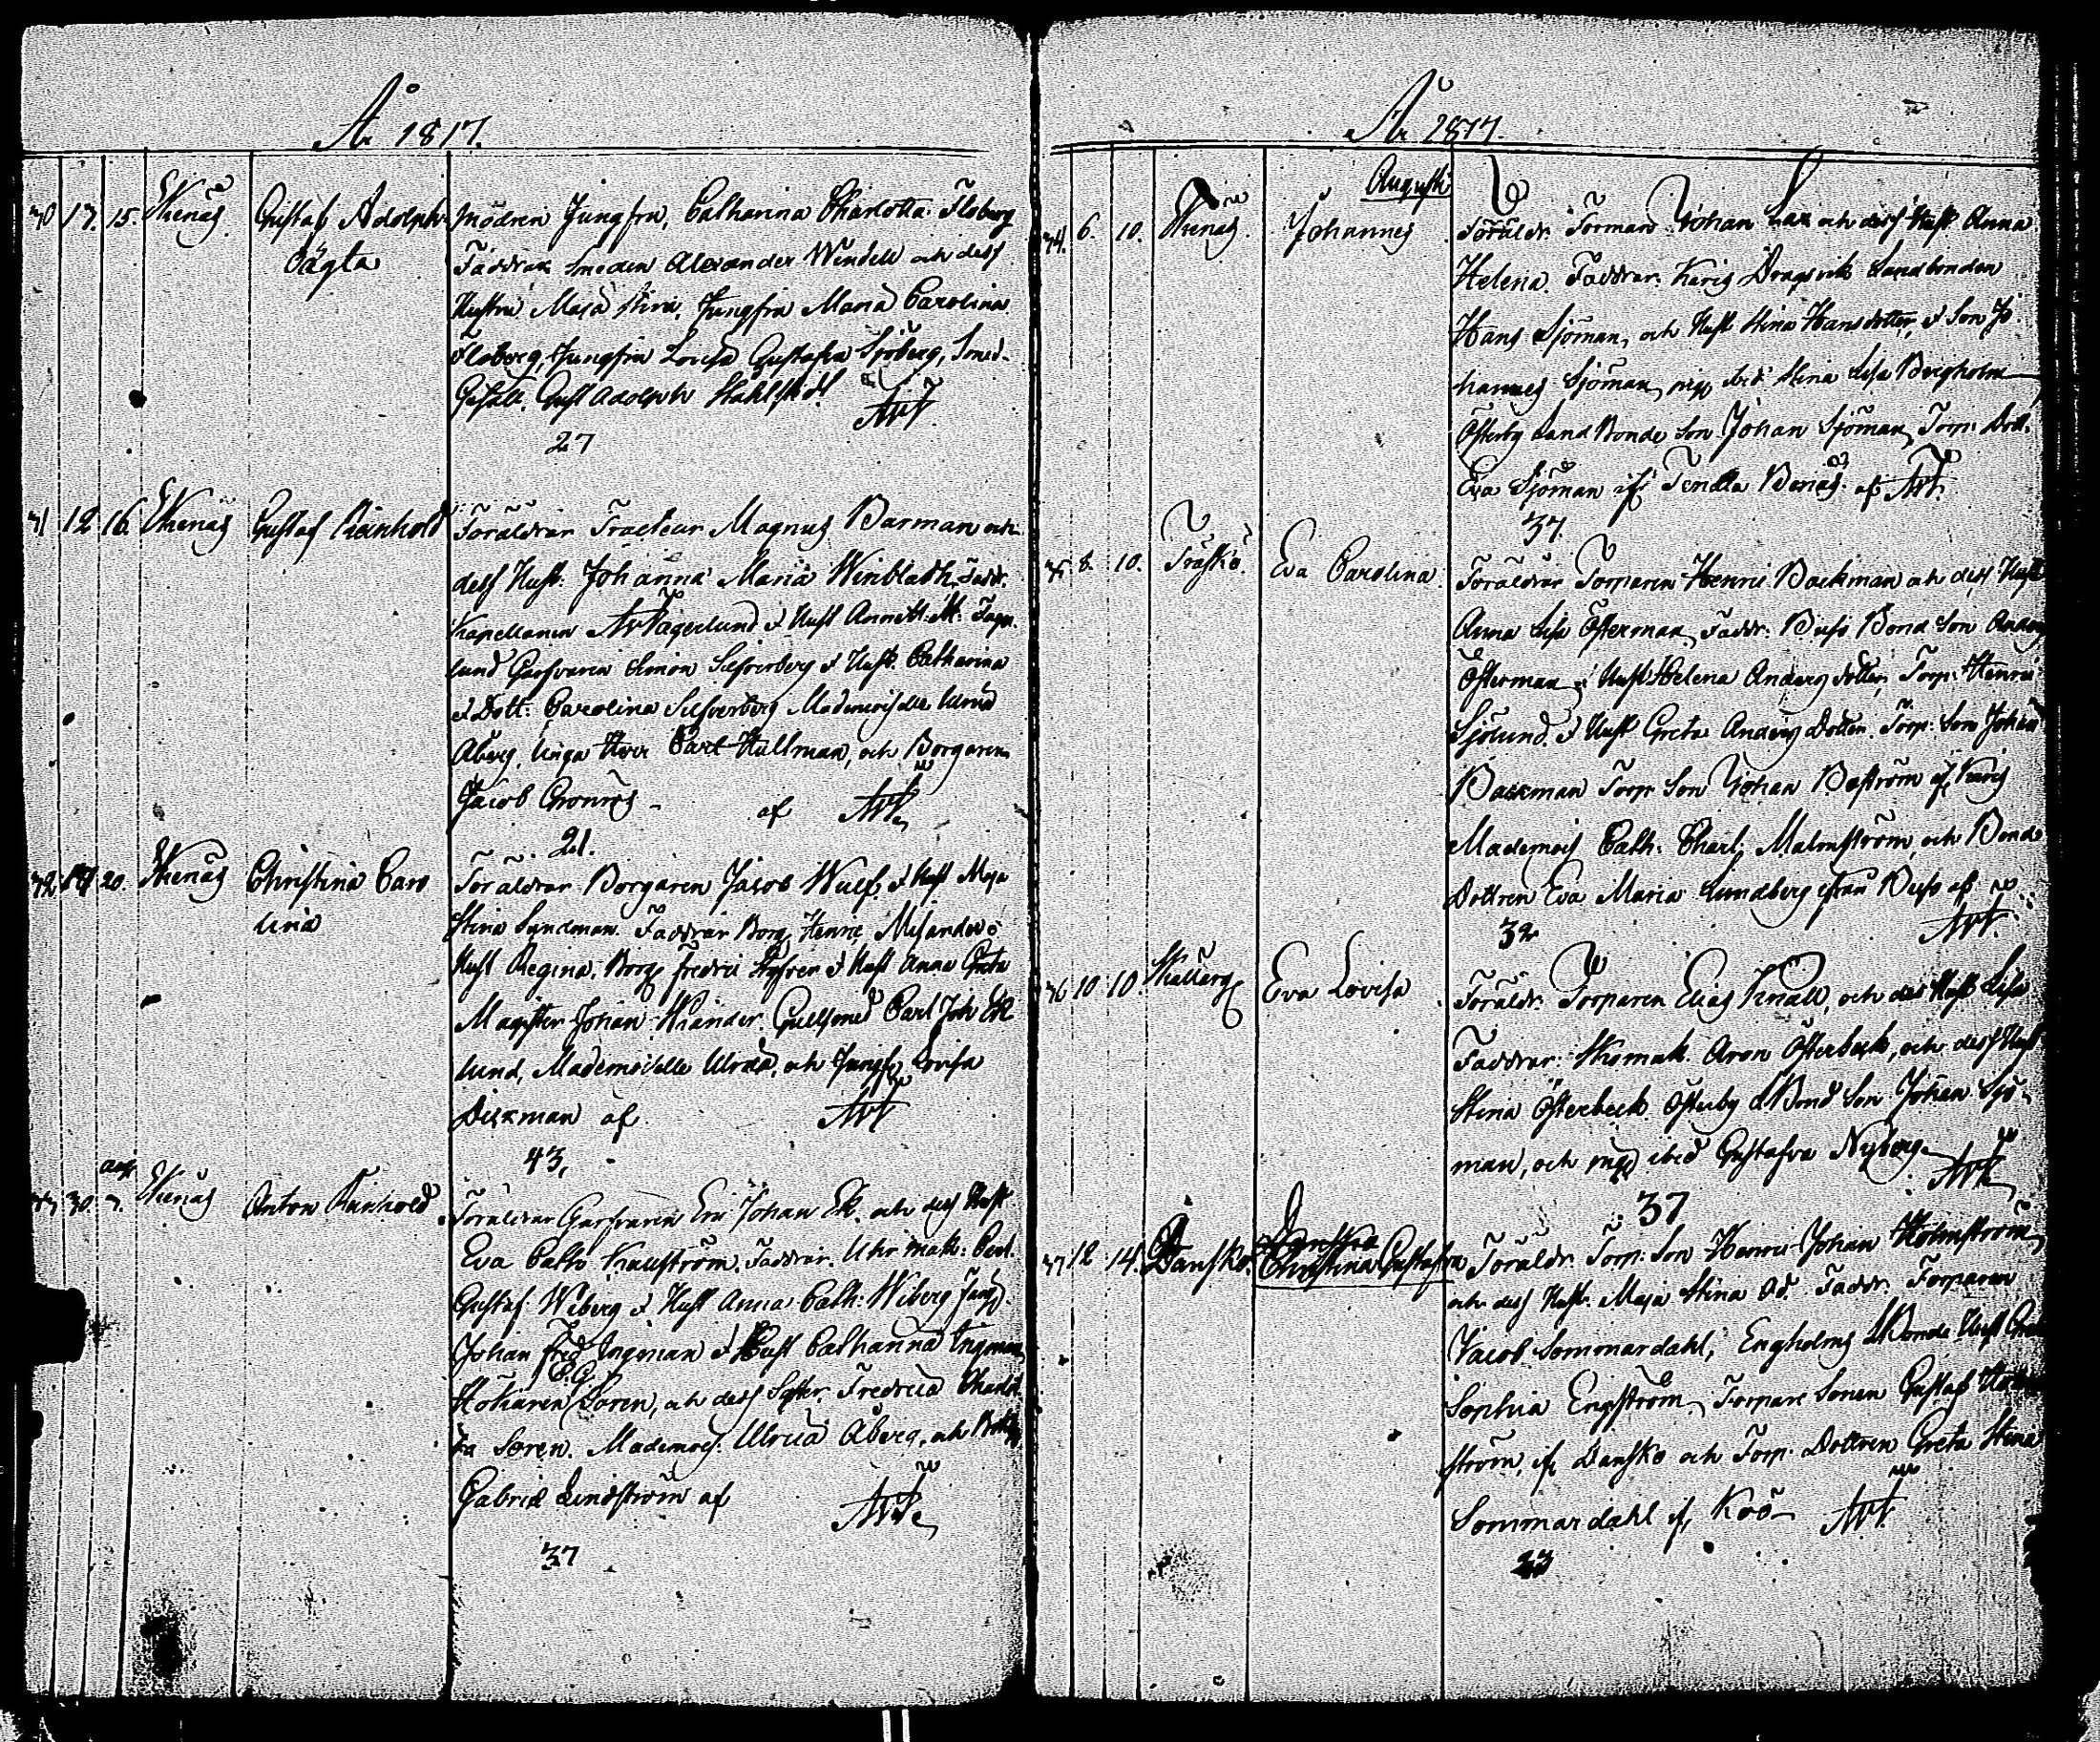 År 1817.
70 17. 15. Ekenäs Gustaf Adolph Modren Jungfru, Catharina Charlotta Floberg
Oägta Faddrar Smeden Alexander Windell och dess
Hustru Maja Stina, Jungfru Maria Carolina
Floberg, Jungfru Lovisa Gustafva Sjöberg, Smed-
Gesäll. Gust Adolph
27
71 12 16. Ekenäs Gustaf Reinhold Föräldrar Tracteur Magnus Barman och
dess Hust: Johanna Maria Winbladh, Fadd:
Kapellanen Fagerlund & Hust Annett: M: Fager
lund Garfvaren Simon Silfverberg & Hust: Catharina
& Dott: Carolina Silfverberg Mademoiselle Ulrica
Åberg, Unga Herr Carl Hallman, och Borgaren
Jacob af
21.
72 20. Ekenäs Christina Caro Föräldrar Borgaren Jacob Wulf & Hust Maja
lina Stina Lyndman. Faddrar Borg Henric Melander &
Hust Regina. Borg fredric & Hust Anna Greta
Magister Johan Gullsmed Carl Joh Ek
lund, Mademoiselle Ulrica, och Jungf Lovisa
Dickman af
43,
Aug
73 30. 7. Ekenäs Anton Reinhold Föräldrar Garfvaren Eric Johan Ek. och dess Hust
Eva Cath Faddrar. Uhr mak: Carl
Gustaf Wiberg & Hust Anna Cath: Wiberg
Johan Fred Ingman & Hust Catharina Ingman
C. G.
Hökaren Soren, och dess Syster Fredrica Charlot
ta Soren. Mademois: Ulrica Åberg, och
Gabriel Lindström af
37
År 1817.
Augusti
74. 6. 10. Ekenäs. Johannes Föräldr: Formann Johan Lax och dess Hust Anna
Helena. Faddrar. Karis Dragsvik Landbonden
Hans Sjöman, och Hust Stina Hansdotter, & Son Jo
hannes Sjöman, pig ibid Stina Lisa Bergholm
Österby Land Bonde Son Johan Sjöman, Torp: Dott:
Eva Sjöman if Tenala af
37.
75. 8. 10. Träskö. Eva Carolina Föräldrar Torparen Henric Backman och dess Hust
Anna Lisa Österman, Faddr: Busö Bond Son Anders
Österman & Hust Helena Anders dotter, Torp: Henric
Sjölund & Hust Greta Anders Dotter. Torp: Son Johan
Backman Torp Son Johan Boström if Karis
Mademois Cath: Charl: Malmström, och Bonde
Dottren Eva Maria Lundberg ifrån Busö af
32
76 10 10. Eva Lovisa Föräldr: Torparen Elias Knall, och dess Hust Lisa
Faddrar: Skomak Aron Österbeck, och dess Hust
Stina Österbeck Österby LBond Son Johan Sjö
man, och pig ibid Gustafva Nyberg
37
77 12 14. Danskö. Christina Gustafva Föräldr: Torp: Son Henric Johan Holmström,
och dess Hust: Maja Stina Faddr: Torparen
Jacob Sommardahl, Engholms LBonde Hust
Sophia Engström, Torpare Sonen Gustaf Holm
ström, if Danskö och Torp: Dottren Greta Stina
Sommardahl if, Koö
23